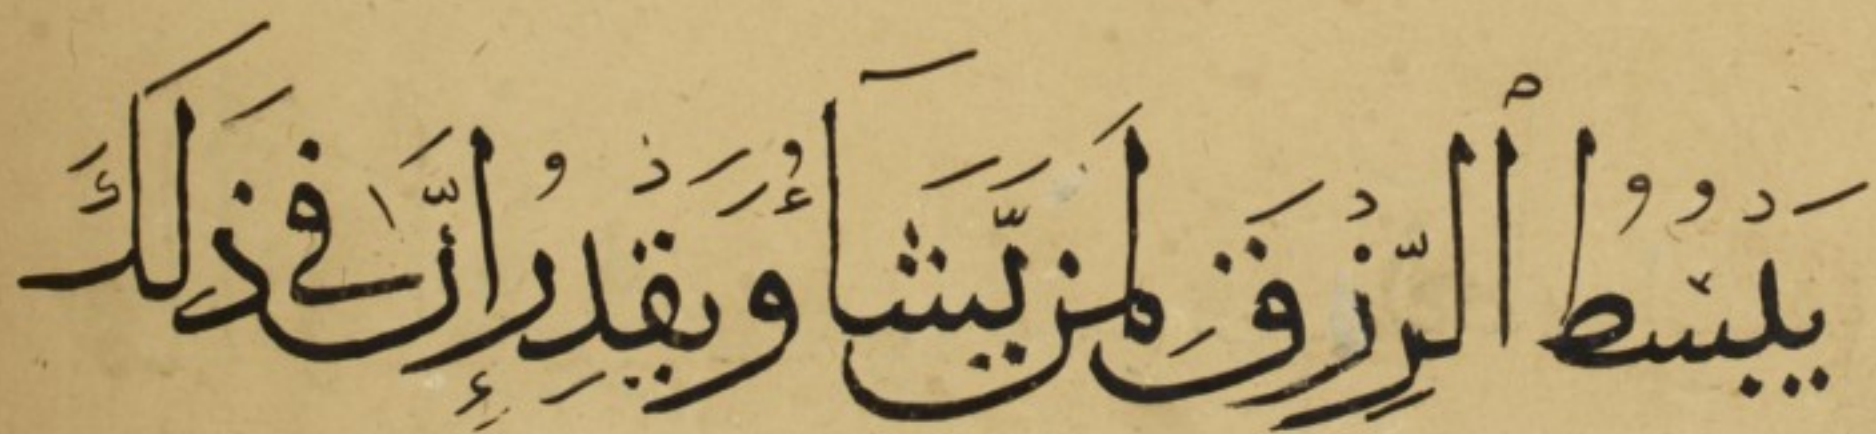 يَبْسُطُ ٱلرِّزْقَ لِمَن يَّشَآءُ وَيَقْدِرُ إِنَّ فِي ذَٰلِكَ